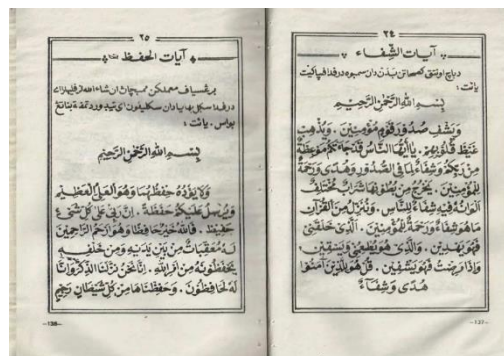 ٢٤
آيات الشِّفَاء
دباچ اونتق كصحاتن بدن دان سمبوه درفد ڤپاكيت
يائت :
بِسْمِ اللهِ الرَّحْمٰنِ الرَّحِيْمِ
وَيَشْفِ صُدُورَ قَوْمٍ مُؤْمِنِينَ . وَيُذْهِبْ
غَيْظَ قُلُوبِهِمْ . يٰأَيُّهَا النَّاسُ قَدْ جَاءَتْكُمْ مَوْعِظَةٌ
مِنْ رَبِّكُمْ وَشِفَاءٌ لِمَا فِي الصُّدُورِ وَهُدًى وَرَحْمَةٌ
لِلْمُؤْمِنِينَ . يَخْرُجُ مِنْ بُطُونِهَا شَرَابٌ مُخْتَلِفٌ
أَلْوَانُهُ فِيهِ شِفَاءٌ لِلنَّاسِ . وَنُنَزِّلُ مِنَ الْقُرْآنِ
مَا هُوَ شِفَاءٌ وَرَحْمَةٌ لِلْمُؤْمِنِينَ . الَّذِي خَلَقَنِي
فَهُوَ يَهْدِينِ . وَالَّذِي هُوَ يُطْعِمُنِي وَيَسْقِينِ .
وَإِذَا مَرِضْتُ فَهُوَ يَشْفِينِ . قُلْ هُوَ لِلَّذِينَ آمَنُوا
هُدًى وَشِفَاءٌ
-137-
٢٥
آيات الحفظ
برڠسياڤ ممباچ ان شاء الله ترڤليهارا اي
درفد سكل بهايا دان سكليڤون اي تيدور دتمڤة بناتڠ
بواس . يائت :
بِسْمِ اللهِ الرَّحْمٰنِ الرَّحِيْمِ
وَلَا يَؤُدُهُ حِفْظُهُمَا وَهُوَ الْعَلِيُّ الْعَظِيمُ
وَيُرْسِلُ عَلَيْكُمْ حَفَظَةً . إِنَّ رَبِّي عَلَى كُلِّ شَيْءٍ
حَفِيظٌ . فَاللهُ خَيْرٌ حَافِظًا وَهُوَ أَرْحَمُ الرَّاحِمِينَ
لَهُ مُعَقِّبَاتٌ مِنْ بَيْنِ يَدَيْهِ وَمِنْ خَلْفِهِ
يَحْفَظُونَهُ مِنْ أَمْرِ اللهِ . إِنَّا نَحْنُ نَزَّلْنَا الذِّكْرَ وَإِنَّا
لَهُ لَحَافِظُونَ . وَحَفِظْنَاهَا مِنْ كُلِّ شَيْطَانٍ رَجِيمٍ
-138-